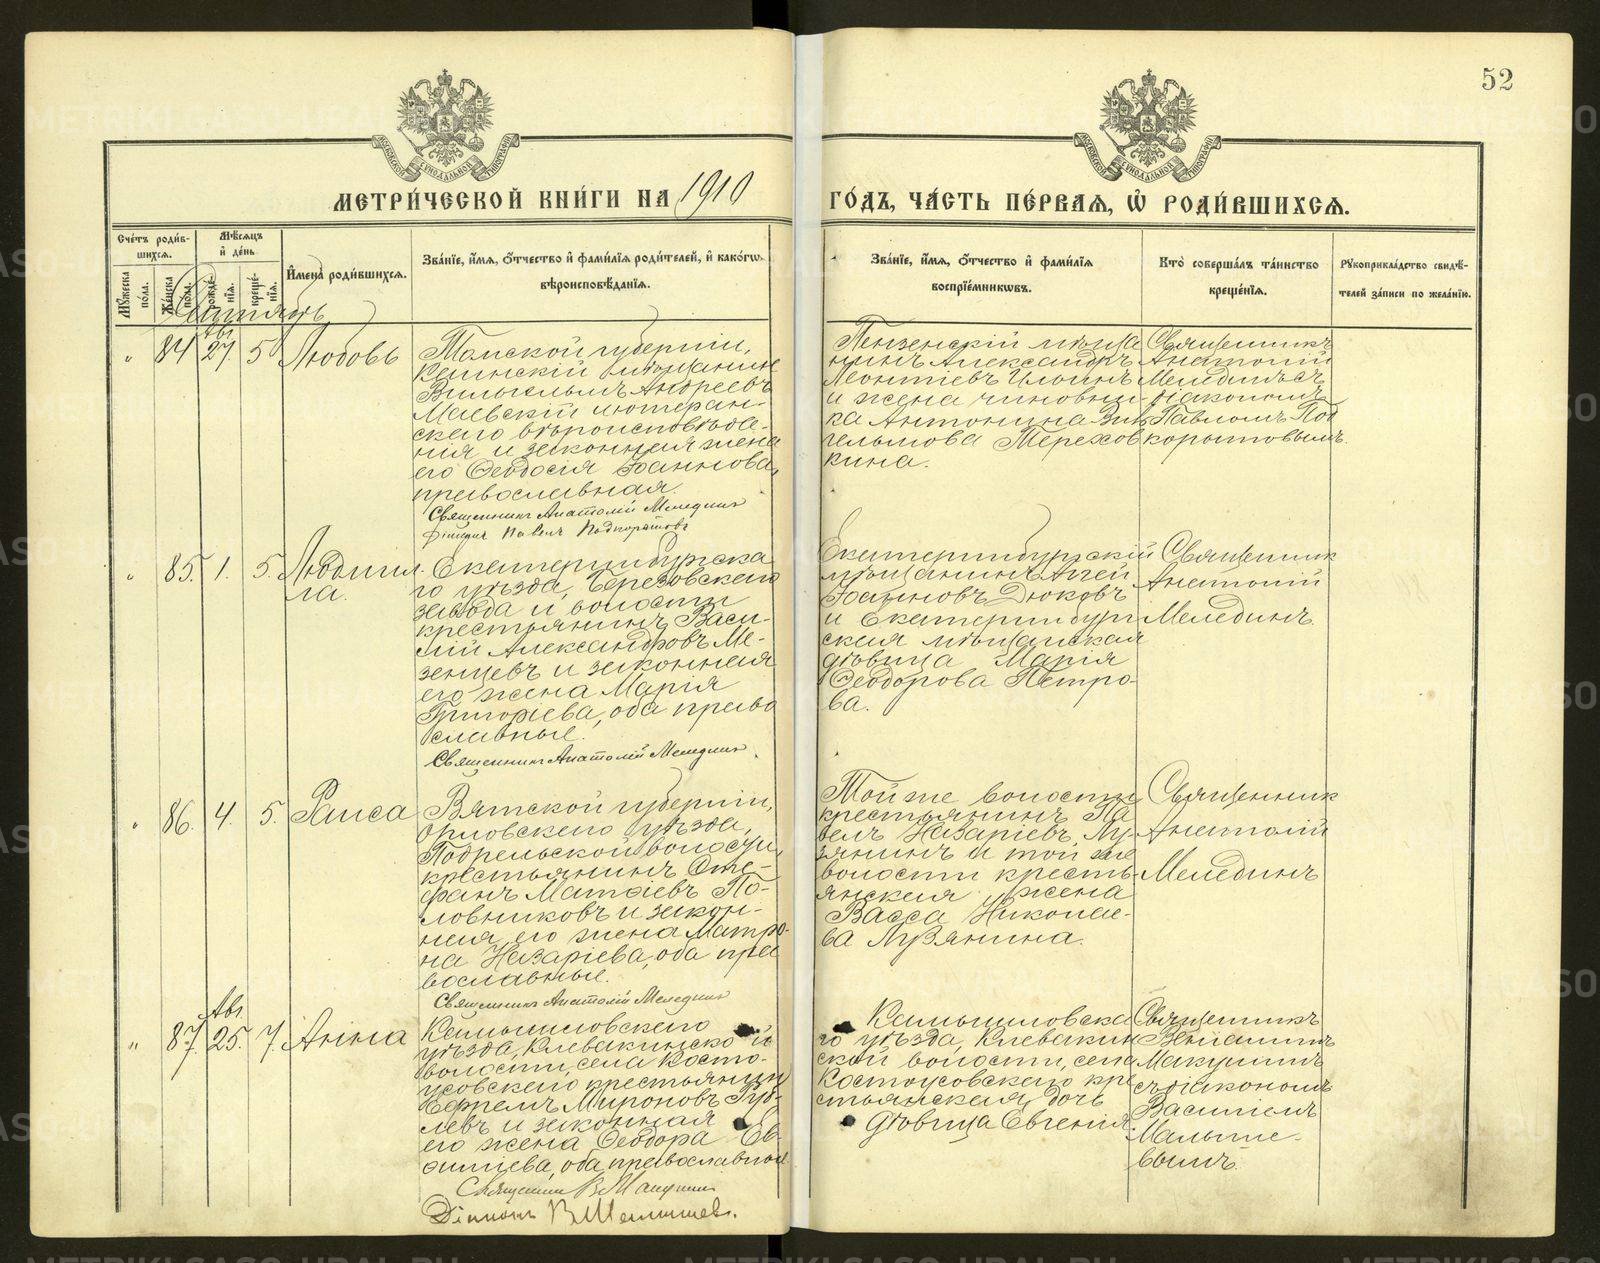 52
МЕТРИ́ЧЕСКОЙ КНИ́ГИ НА 1910
ГО́ДЪ, ЧА́СТЬ ПЕ́РВАЯ, Ѡ҆ РОДИ́ВШИХСѦ.
Сче́тъ роди́в-
шихся.
Мѣ́сяцъ
и҆ де́нь
Мꙋ́жеска по́ла.
Же́нска по́ла.
рожде́-нїѧ.
креще́-нїѧ.
И҆мена̀ роди́вшихсѧ.
Зва́нїе, и҆́мѧ, ѻ҆́тчество и҆ фами́лїѧ роди́телей, и҆ како́гѡ
вѣроисповѣ́данїѧ.
Зва́нїе, и҆́мѧ, ѻ҆́тчество и҆ фами́лїѧ
воспрїе́мниковъ.
Кто̀ соверша́лъ та́инство
креще́нїѧ.
Рꙋкоприкла́дство свидѣ́-
телей за́писи по жела́нїю.
Сентябрь
„ 84 Авг. 27. 5 Любовь
Томской губернiи,
Каинскiй мѣщанинъ
Вильгельмъ Андреевъ
Маевскiй лютеран-
скаго вѣроисповѣда-
нiя и законная жена
его Ѳеодосiя Іоаннова,
православная.
Священникъ Анатолiй Меледин
Дiаконъ Павелъ Подкорытовъ
Пензенскiй мѣща
нинъ Александръ
Леонтiевъ Ильинъ
и жена чиновни-
ка Антонина Виль
гельмова Терехов
кина.
Священникъ
Анатолiй
Мелединъ съ
дiакономъ
Павломъ Под
корытовымъ.
„ 85. 1. 5. Людмил
ла.
Екатеринбургска
го уѣзда, Березовскаго
завода и волости
крестьянинъ Васи-
лiй Александровъ Ме-
зенцевъ и законная
его жена Марiя
Григорiева, оба право
славные.
Священникъ Анатолiй Меледин
Екатеринбургскiй
мѣщанинъ Аггей
Іоанновъ Дюковъ
и Екатеринбург
ская мѣщанская
дѣвица Марiя
Ѳеодорова Петро-
ва.
Священник
Анатолiй
Мелединъ
„ 86. 4. 5. Раиса
Вятской губернiи,
Орловскаго уѣзда,
Подрельской волости,
крестьянинъ Сте-
фанъ Матѳiевъ По-
ловниковъ и закон-
ная его жена Матро-
на Назарiева, оба пра
вославные.
Священникъ Анатолiй Меледин
Той же волости
крестьянинъ Па
велъ Назарiевъ Лу-
зянинъ и той же
волости кресть-
янская жена
Васса Николае-
ва Лузянина.
Священник
Анатолiй
Мелединъ
„ 87. Авг. 25. 7. Анна
Камышловскаго
уѣзда, Клевакинской
волости, села Косто-
усовскаго крестьянин
Ефремъ Мироновъ Руб-
левъ и законная
его жена Ѳеодора Ев-
ѳимiева, оба православные
Священник В Макушин
Дiаконъ В Малышев.
Камышловска
го уѣзда, Клевакин
ской волости, села
Костоусовскаго кре
стьянская дочь
дѣвица Евгенiя
Священникъ
Венiаминъ
Макушинъ
съ дiакономъ
Василiемъ
Малыше-
вымъ.
METRIKI.GASO-URAL.RU